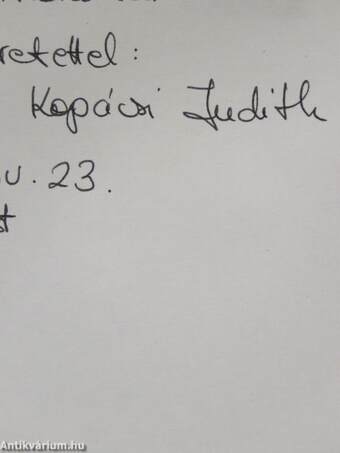 retettel:
Kopácsi Judith
u. 23.
st
Antikvárium.hu